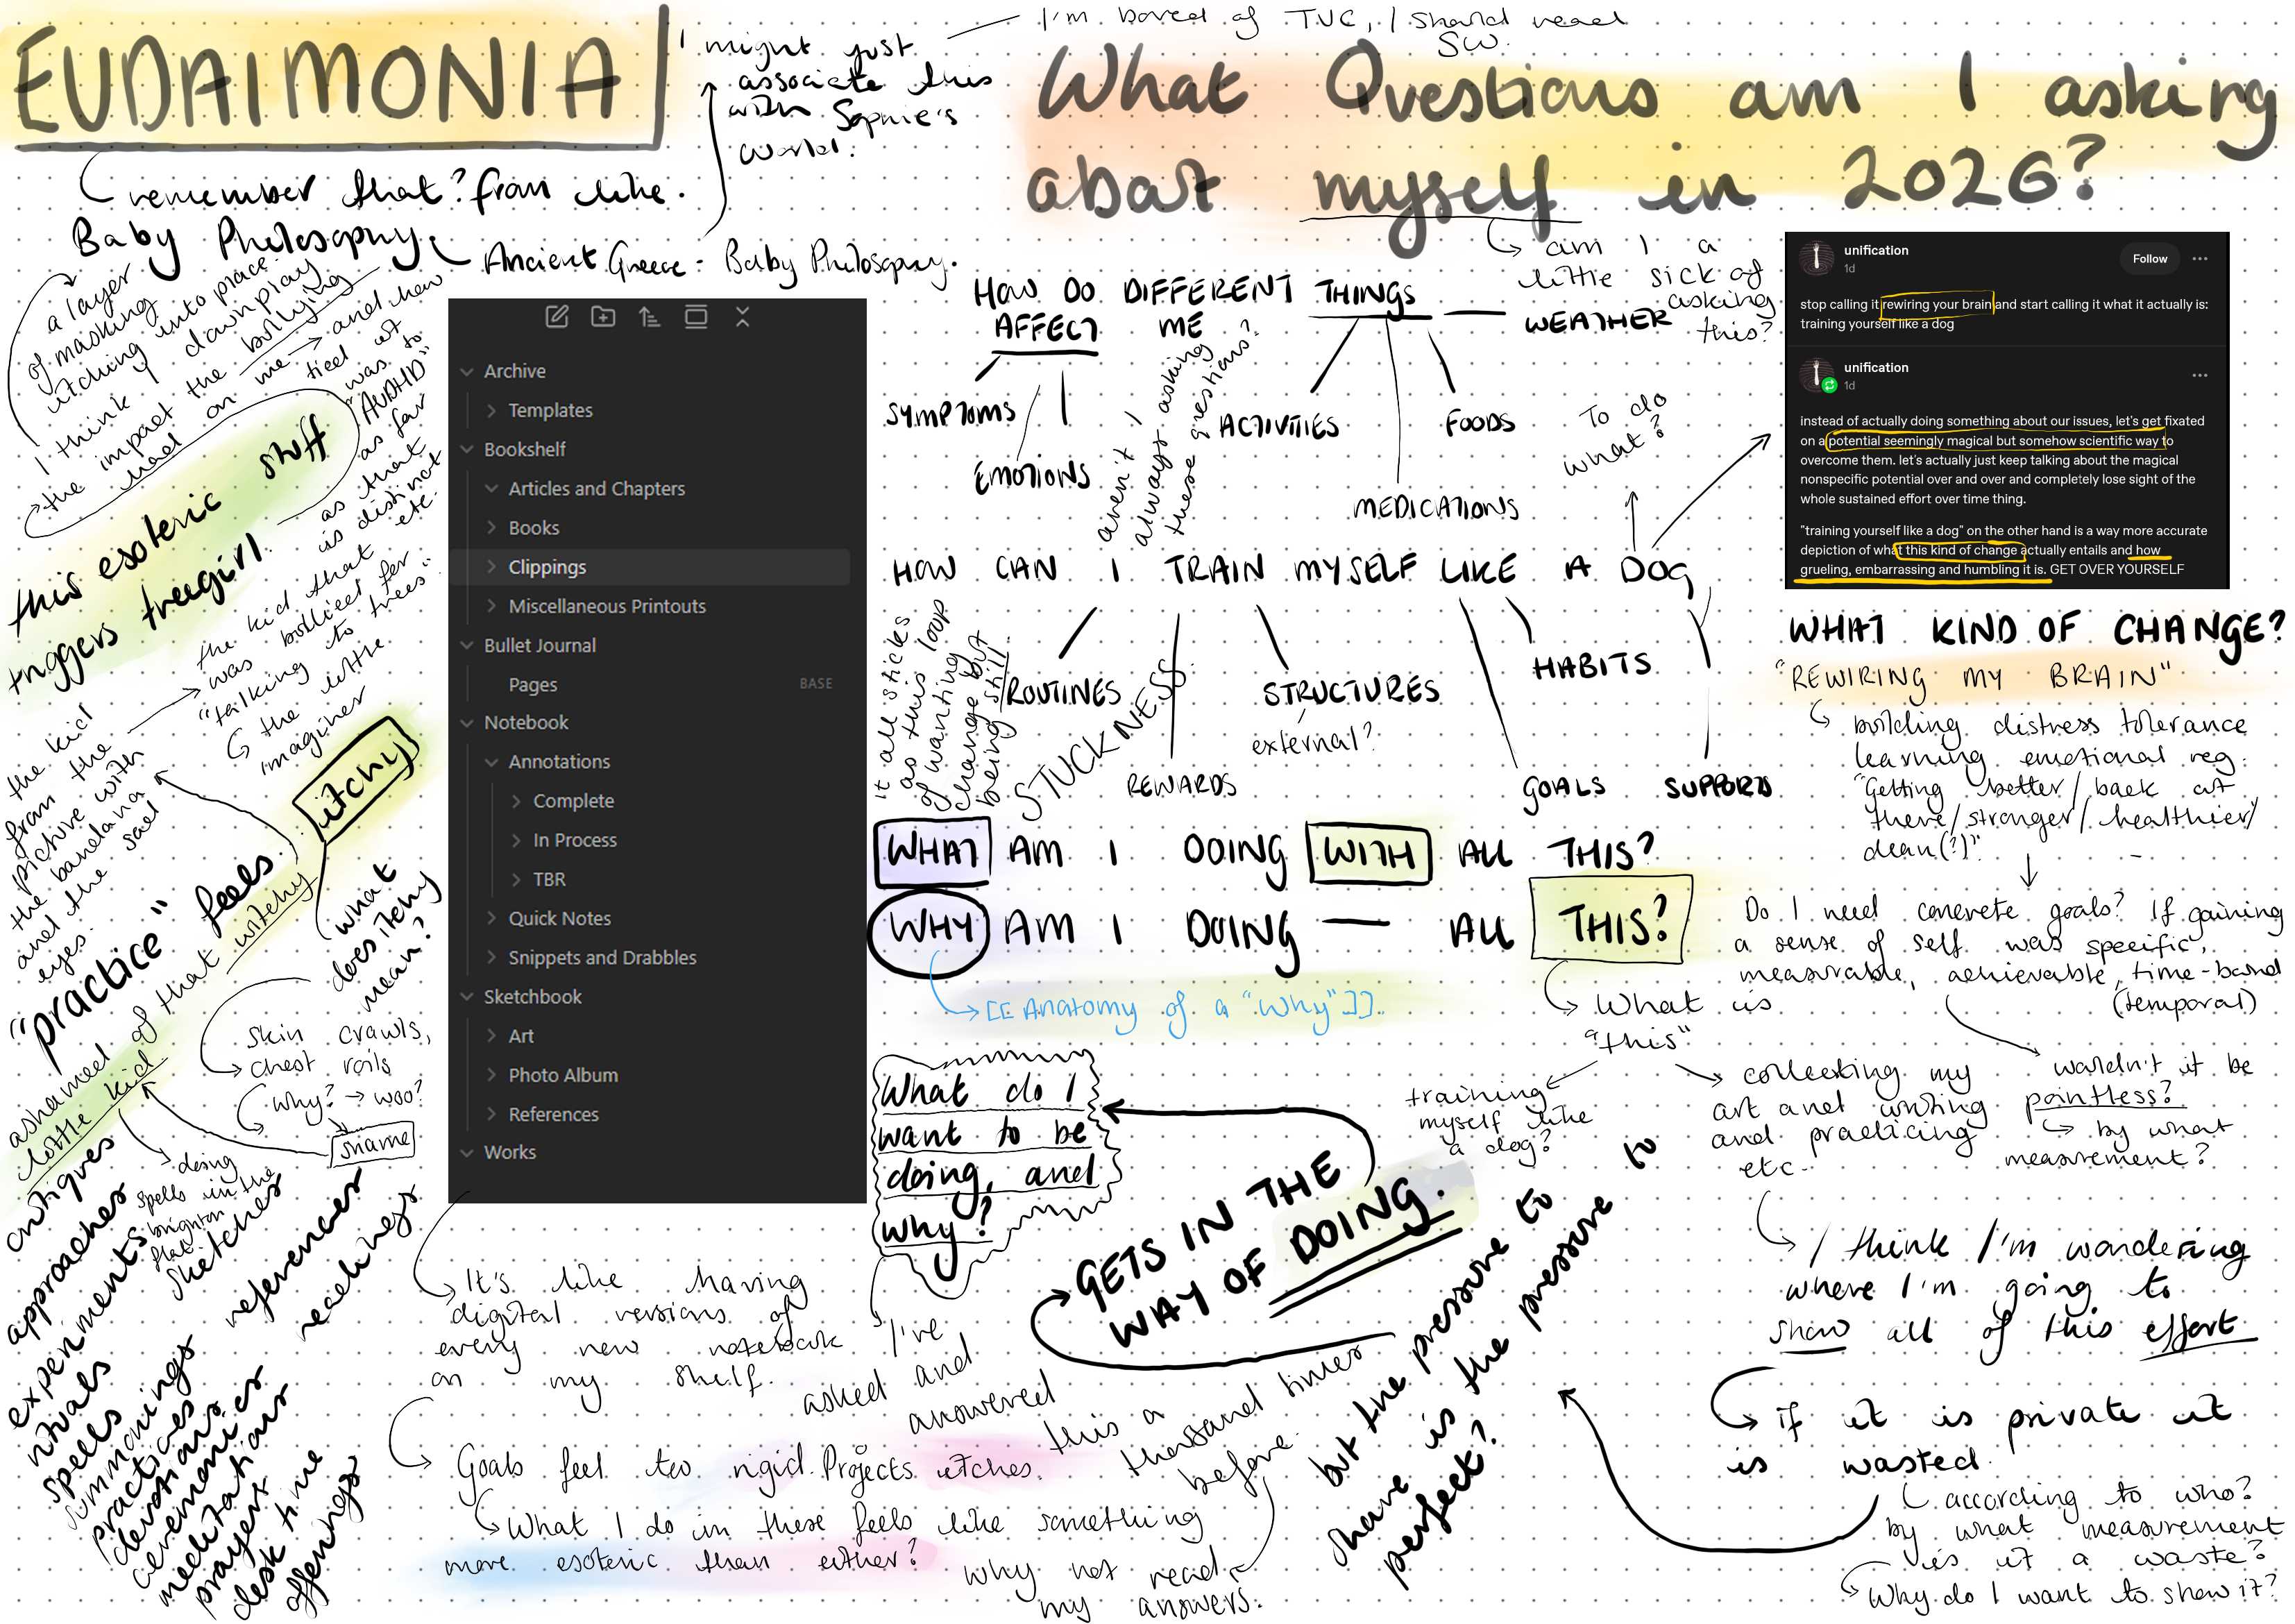 EUDAIMONIA
I might just
associate this
with Sophie's
World.
I'm bored of TVC, I should read
SW.
remember that? from like.
Baby Philosophy.
Ancient Greece - Baby Philosophy.
What Questions am I asking
about myself in 2026?
am I a
little sick of
asking
this?
HOW DO DIFFERENT THINGS
AFFECT ME
WEATHER
SYMPTOMS
EMOTIONS
ACTIVITIES
MEDICATIONS
FOODS
aren't I
always asking
these questions?
To do
what?
HOW CAN I TRAIN MYSELF LIKE A DOG
ROUTINES
REWARDS
STRUCTURES
external?
GOALS
HABITS
SUPPORTS
it all sticks
as this loop
of wanting
change but
being still
STUCKNESS
WHAT AM I DOING WITH ALL THIS?
WHY AM I DOING — ALL THIS?
[[Anatomy of a "Why"]]
What is
"this"
training
myself like
a dog?
collecting my
art and writing
and practicing
etc.
I think I'm wondering
where I'm going to
show all of this effort
if it is private it
is wasted.
according to who?
by what measurement
is it a waste?
Why do I want to show it?
unification
1d
Follow
stop calling it rewiring your brain and start calling it what it actually is:
training yourself like a dog
unification
1d
instead of actually doing something about our issues, let's get fixated
on a potential seemingly magical but somehow scientific way to
overcome them. let's actually just keep talking about the magical
nonspecific potential over and over and completely lose sight of the
whole sustained effort over time thing.
"training yourself like a dog" on the other hand is a way more accurate
depiction of what this kind of change actually entails and how
grueling, embarrassing and humbling it is. GET OVER YOURSELF
WHAT KIND OF CHANGE?
"REWIRING MY BRAIN"
building distress tolerance
learning emotional reg.
"Getting better/back out
there/stronger/healthier/
clean(?)".
Do I need concrete goals? If gaining
a sense of self was specific,
measurable, achievable, time-bound
(temporal)
wouldn't it be
pointless?
by what
measurement?
What do I
want to be
doing, and
why?
GETS IN THE
WAY OF DOING.
I've
asked and
answered
this a
thousand times
before.
why not read
my answers.
but the pressure to
share is the pressure to
perfect?
Archive
Templates
Bookshelf
Articles and Chapters
Books
Clippings
Miscellaneous Printouts
Bullet Journal
Pages BASE
Notebook
Annotations
Complete
In Process
TBR
Quick Notes
Snippets and Drabbles
Sketchbook
Art
Photo Album
References
Works
It's like having
digital versions of
every new notebook
on my shelf.
Goals feel too rigid. Projects itches.
What I do in these feels like something
more esoteric than either?
a layer
of masking
itching into place.
I think I downplay
the impact the bullying
had on me and how
tied it
was to
"AUDHD"
as far
as that
is distinct
etc.
this esoteric stuff
triggers treegirl.
the kid that
was bullied for
"talking to trees".
the little
imaginer
the kid
from the
picture with
the bandana
and the sad
eyes.
"practice" feels itchy
what
does itchy
mean?
skin crawls,
chest roils
why? → woo?
shame
ashamed of that witchy
little kid
doing
spells in the
brighton
flat
critiques
approaches
experiments
rituals
spells
summonings
practices
devotions
ceremonies
meditations
prayers
desk time
offerings
sketches
references
readings